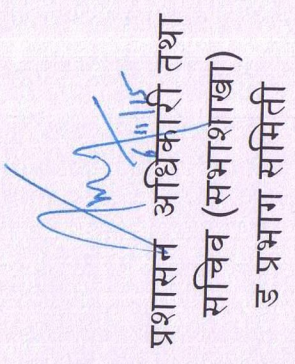 6/11/15
प्रशासन अधिकारी तथा
सचिव (सभाशाखा)
ड प्रभाग समिती